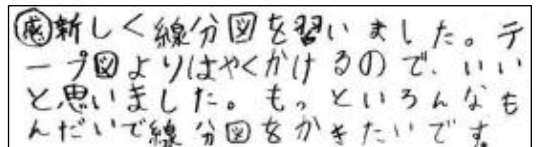 感新しく線分図を習いました。テ
ープ図よりはやくかけるので、いい
と思いました。もっといろんなも
んだいで線分図をかきたいです。